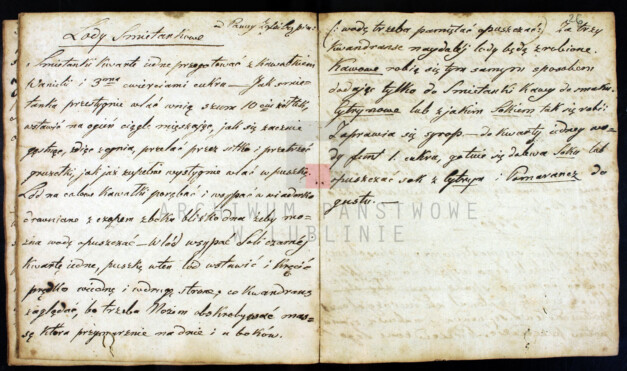 Lody Smietankowe
Smietanki kwartę iedne przegotować z kawałkiem
Wanilii i 3ma cwierciami cukru — Jak smie-
tanka przestygnie wlać w nią z kurz 10ciu żółtek,
wstawić na ogień ciągle mięszając, jak się zacznie
gęstnąć, zdjąć z ognia, przelać przez sitko i przetrzeć
gruzołki, jak już zupełnie wystygnie wlać w puszkę,
Lod na calowe kawałki porąbać i wsypać w wiaderko
drewniane z czopem z boku blisko dna żeby mo-
żna wodę opuszczać — W lód wsypać Soli czarnej
kwartę iedne, puszkę w ten lod wstawić i kręcić
prędko w iedną i w drugą stronę, co kwandrans
zaglądać, bo trzeba Nożem oskrobywać mas-
sę która przymarznie na dnie i u boków.
26
wodę trzeba pamiętać opuszczać; Za trzy
kwandranse naydalej lody będą zrobione.
Kawowe robią się tym samym sposobem
dodając tylko do Smietanki Kawy do smaku.
Cytrynowe lub z jakim Sokiem tak się robi:
Zaprawia się syrop — do kwarty iedney wo-
dy funt 1. cukru, gotuie się dolewa Soku lub
opuszczać sok z Cytryn i Pomarancz do
gustu. —
ARCHIWUM PAŃSTWOWE
W LUBLINIE